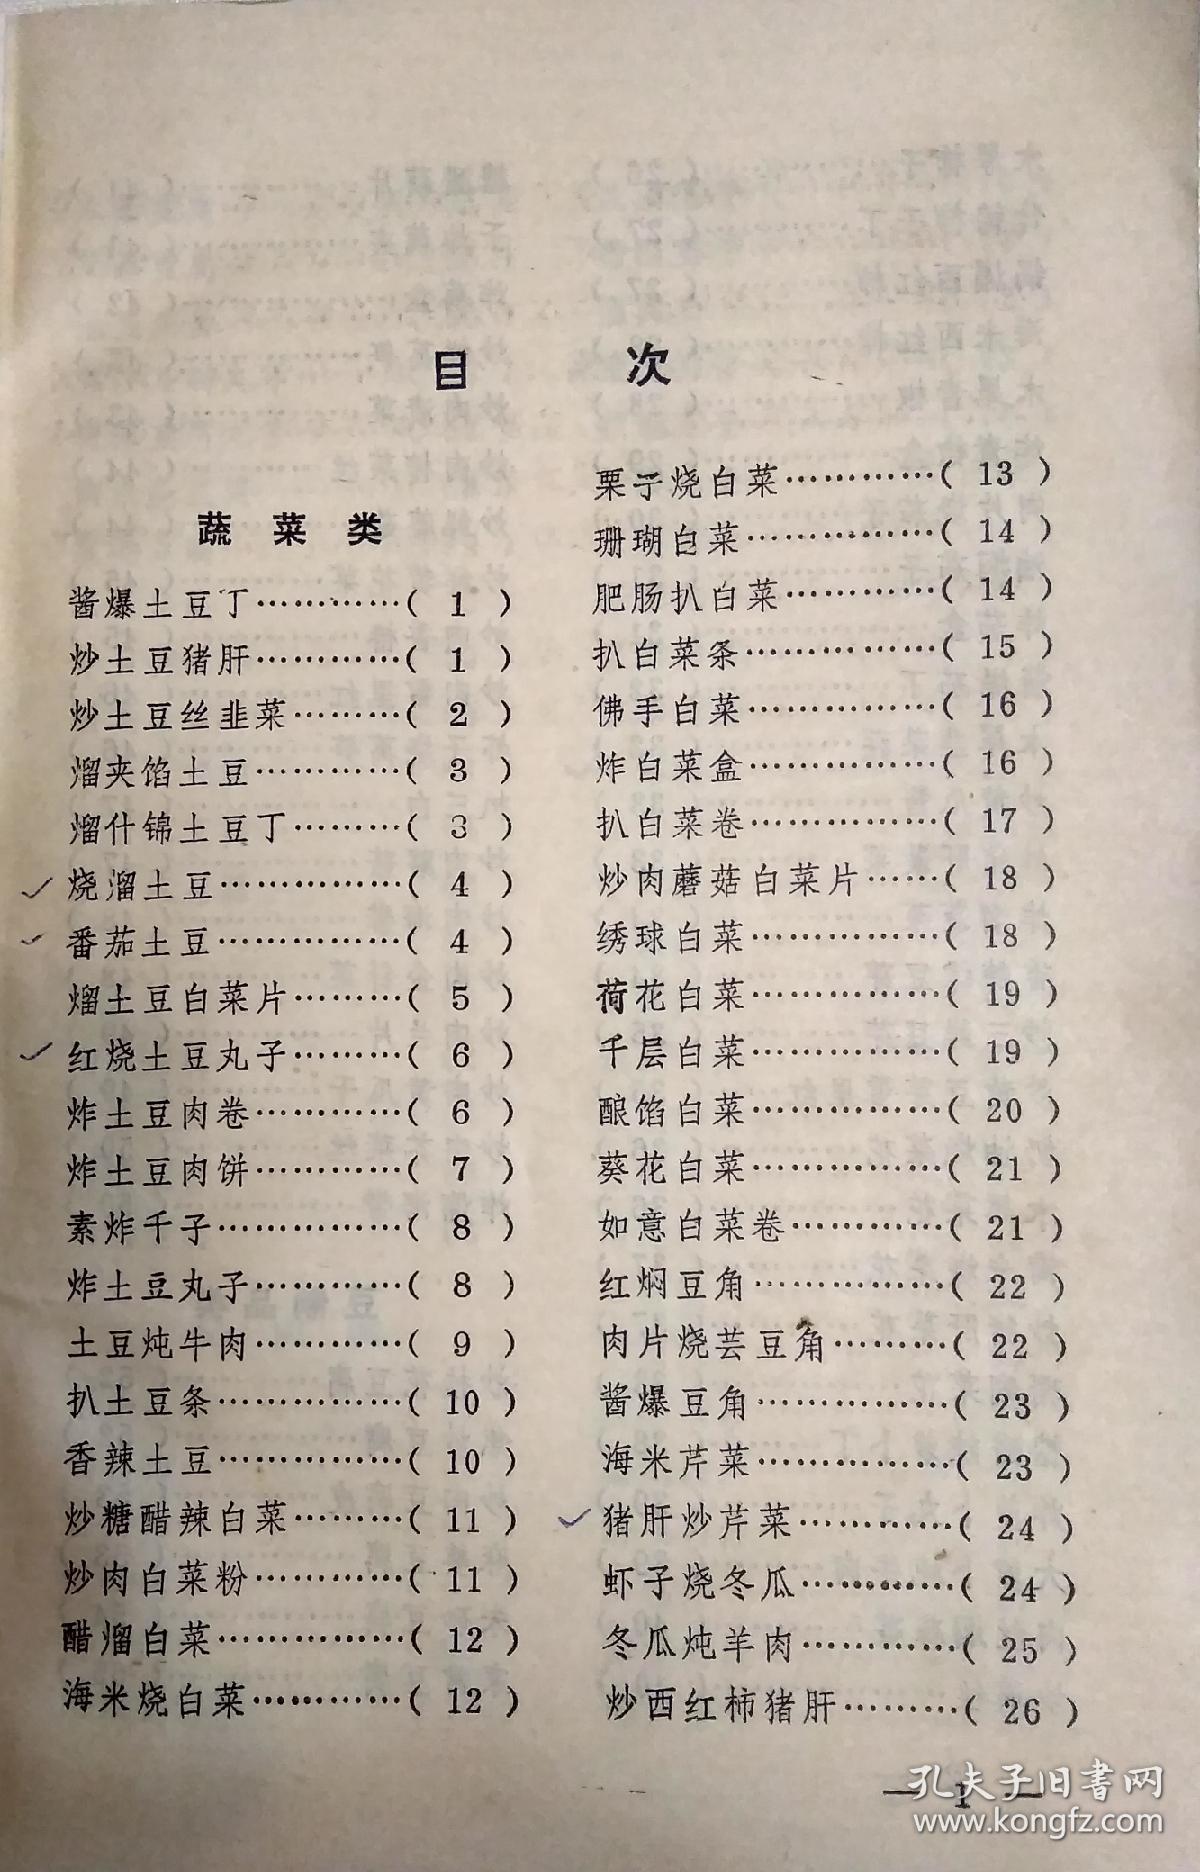 目 次
蔬菜类
酱爆土豆丁…………( 1 )
炒土豆猪肝…………( 1 )
炒土豆丝韭菜………( 2 )
熘夹馅土豆…………( 3 )
熘什锦土豆丁………( 3 )
烧溜土豆……………( 4 )
番茄土豆……………( 4 )
熘土豆白菜片………( 5 )
红烧土豆丸子………( 6 )
炸土豆肉卷…………( 6 )
炸土豆肉饼…………( 7 )
素炸千子……………( 8 )
炸土豆丸子…………( 8 )
土豆炖牛肉…………( 9 )
扒土豆条……………( 10 )
香辣土豆……………( 10 )
炒糖醋辣白菜………( 11 )
炒肉白菜粉…………( 11 )
醋熘白菜……………( 12 )
海米烧白菜…………( 12 )
栗子烧白菜…………( 13 )
珊瑚白菜……………( 14 )
肥肠扒白菜…………( 14 )
扒白菜条……………( 15 )
佛手白菜……………( 16 )
炸白菜盒……………( 16 )
扒白菜卷……………( 17 )
炒肉蘑菇白菜片……( 18 )
绣球白菜……………( 18 )
荷花白菜……………( 19 )
千层白菜……………( 19 )
酿馅白菜……………( 20 )
葵花白菜……………( 21 )
如意白菜卷…………( 21 )
红焖豆角……………( 22 )
肉片烧芸豆角………( 22 )
酱爆豆角……………( 23 )
海米芹菜……………( 23 )
猪肝炒芹菜…………( 24 )
虾子烧冬瓜…………( 24 )
冬瓜炖羊肉…………( 25 )
炒西红柿猪肝………( 26 )
— 1 —
孔夫子旧书网
www.kongfz.com